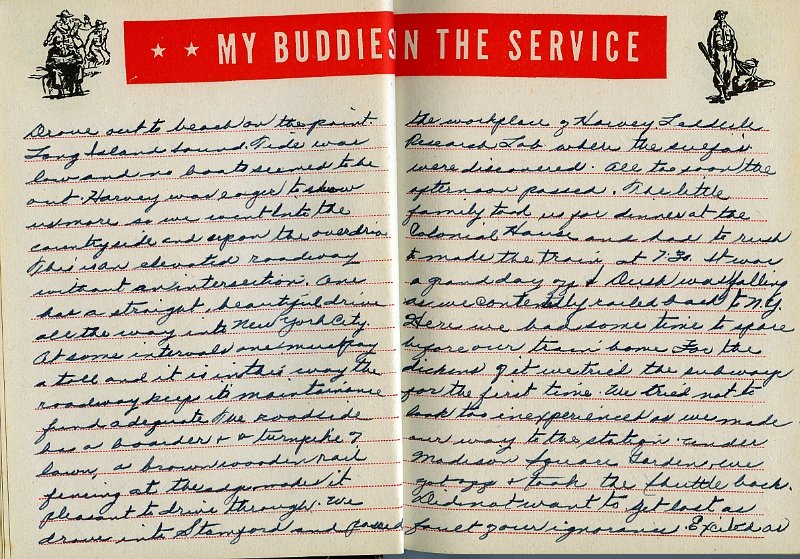 ★ ★ MY BUDDIES
Drove out to beach on the point
Long Island Sound. Tide was
low and no boats seemed to be
out. Harvey was eager to show
us more so we went into the
countryside and upon the overdrive
This is an elevated roadway
without an intersection. One
has a straight, beautiful drive
all the way into New York City.
At some intervals one must pay
a toll and it is in this way the
roadway keeps its maintainence
fund adequate. The roadside
has a boarder + a turnpike of
lawn, a brown wooden rail
fencing at the edge made it
pleasant to drive through. We
drove into Stamford and passed
N THE SERVICE
the workplace of Harvey Lederle
Research Lab where the sulfas
were discovered. All too soon the
afternoon passed. The little
family took us for dinner at the
Colonial House and had to rush
to made the train at 7:30. It was
a grand day Dusk was falling
as we contentedly railed back to N.Y.
Here we had some time to spare
before our train home. For the
dickens of it we tried the subways
for the first time. We tried not to
look too inexperienced as we made
our way to the station. Under
Madison Square Garden we
got off + took the shuttle back.
Did not want to get lost as
your ignorance. Excited as